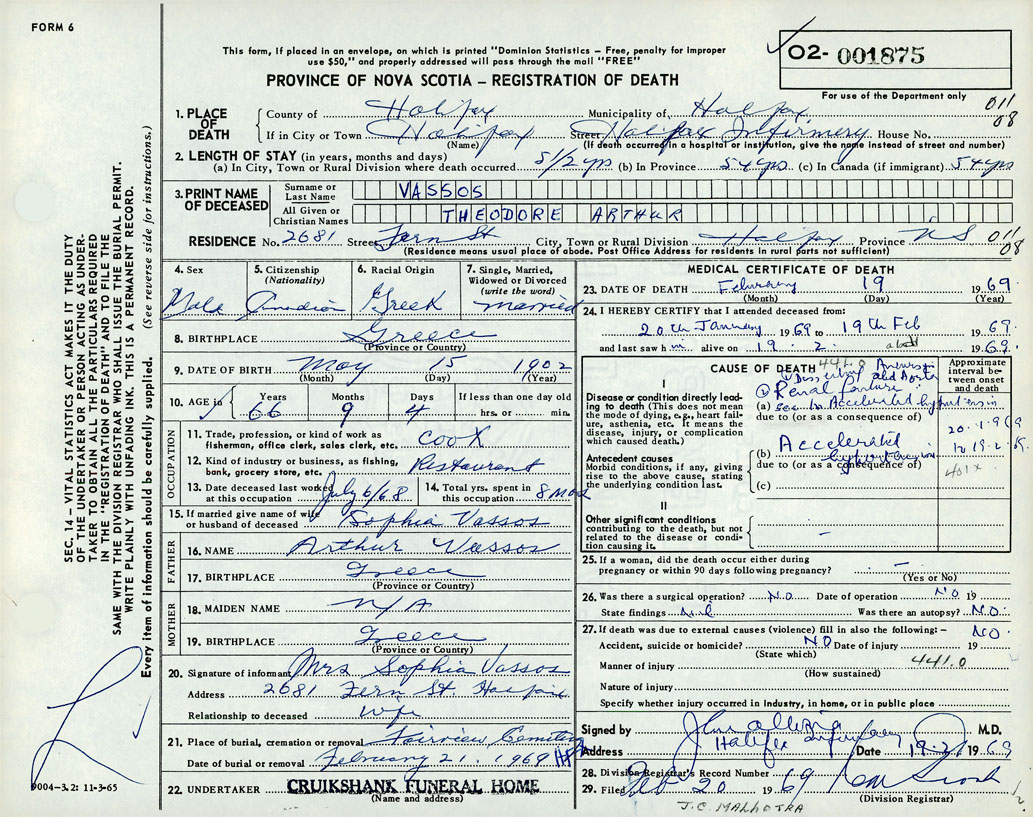 FORM 6
This form, if placed in an envelope, on which is printed "Dominion Statistics – Free, penalty for improper
use $50," and properly addressed will pass through the mail "FREE"
PROVINCE OF NOVA SCOTIA – REGISTRATION OF DEATH
02- 001875
For use of the Department only
011
08
1. PLACE OF DEATH
County of Halifax Municipality of Halifax
If in City or Town Halifax Street Halifax Infirmery House No.
(Name) (If death occurred in a hospital or institution, give the name instead of street and number)
2. LENGTH OF STAY (in years, months and days)
(a) In City, Town or Rural Division where death occurred 5 1/2 yrs (b) In Province 54 yrs. (c) In Canada (if immigrant) 54 yrs
3. PRINT NAME OF DECEASED
Surname or Last Name VASSOS
All Given or Christian Names THEODORE ARTHUR
RESIDENCE No. 2681 Street Fern St City, Town or Rural Division Halifax Province N S 011
08
(Residence means usual place of abode. Post Office Address for residents in rural parts not sufficient)
4. Sex Male
5. Citizenship (Nationality) Canadian
6. Racial Origin Greek
7. Single, Married, Widowed or Divorced (write the word) married
8. BIRTHPLACE Greece
(Province or Country)
9. DATE OF BIRTH May 15 1902
(Month) (Day) (Year)
10. AGE Years 66 Months 9 Days 4 If less than one day old hrs. or min.
OCCUPATION
11. Trade, profession, or kind of work as fisherman, office clerk, sales clerk, etc. Cook
12. Kind of industry or business, as fishing, bank, grocery store, etc. Restaurant
13. Date deceased last worked at this occupation July 6/68
14. Total yrs. spent in this occupation 8 mos
15. If married give name of wife or husband of deceased Sophia Vassos
FATHER
16. NAME Arthur Vassos
17. BIRTHPLACE Greece
(Province or Country)
MOTHER
18. MAIDEN NAME N/A
19. BIRTHPLACE Greece
(Province or Country)
20. Signature of informant Mrs Sophia Vassos
Address 2681 Fern St Halifax
Relationship to deceased Wife
21. Place of burial, cremation or removal Fairview Cemetery
Date of burial or removal February 21, 1969
22. UNDERTAKER CRUIKSHANK FUNERAL HOME
(Name and address)
MEDICAL CERTIFICATE OF DEATH
23. DATE OF DEATH February 19 1969
(Month) (Day) (Year)
24. I HEREBY CERTIFY that I attended deceased from:
20th January 1969 to 19th Feb 1969
and last saw him alive on 19. 2. 1969.
CAUSE OF DEATH 441.0
Approximate interval between onset and death
I
Disease or condition directly leading to death (This does not mean the mode of dying, e.g., heart failure, asthenia, etc. It means the disease, injury, or complication which caused death.)
Renal failure
(a) sec. to Accelerated hypertension
due to (or as a consequence of)
20.1.969
to 19.2.69.
Antecedent causes
Morbid conditions, if any, giving rise to the above cause, stating the underlying condition last.
(b) Accelerated hypertension
due to (or as a consequence of)
401x
(c)
II
Other significant conditions
contributing to the death, but not related to the disease or condition causing it.
–
25. If a woman, did the death occur either during pregnancy or within 90 days following pregnancy? –
(Yes or No)
26. Was there a surgical operation? NO Date of operation NO 19
State findings Nil Was there an autopsy? NO.
27. If death was due to external causes (violence) fill in also the following:– NO.
Accident, suicide or homicide? NO Date of injury 19
(State which)
Manner of injury 441.0
(How sustained)
Nature of injury
Specify whether injury occurred in industry, in home, or in public place
Signed by M.D.
Address Halifax Infirmary Date 19.2. 1969
28. Division Registrar's Record Number
29. Filed Feb 20 1969
(Division Registrar)
J.C. MALHOTRA
SEC. 14 – VITAL STATISTICS ACT MAKES IT THE DUTY
OF THE UNDERTAKER OR PERSON ACTING AS UNDER-
TAKER TO OBTAIN ALL THE PARTICULARS REQUIRED
IN THE "REGISTRATION OF DEATH" AND TO FILE THE
SAME WITH THE DIVISION REGISTRAR WHO SHALL ISSUE THE BURIAL PERMIT.
WRITE PLAINLY WITH UNFADING INK. THIS IS A PERMANENT RECORD.
Every item of information should be carefully supplied. (See reverse side for instructions.)
9004-3.2: 11-3-65